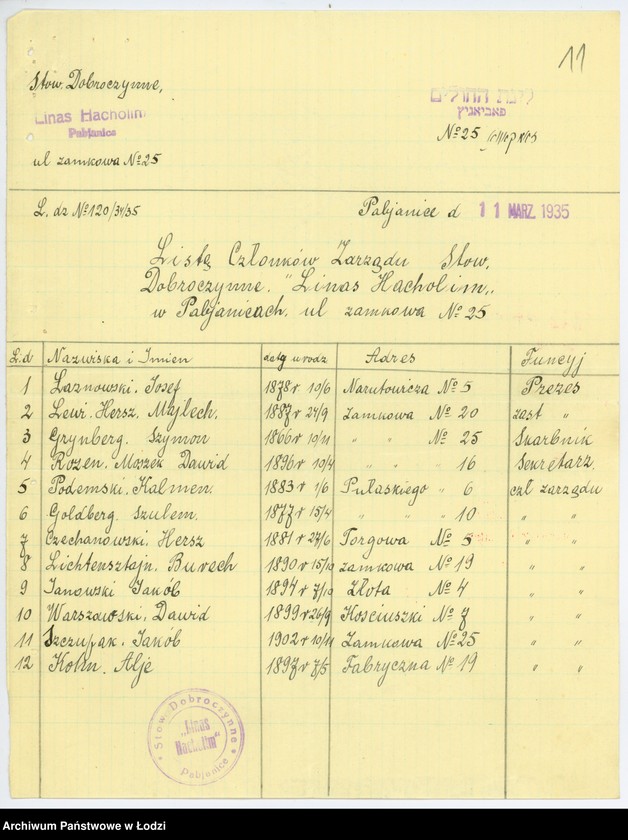 11
Stow. Dobroczynne,
Linas Hacholim
Pabjanice
ul zamkowa № 25
לינת החולים
פאביאניץ
№ 25
L. dz № 120/34/35
Pabjanice d 11 MARZ. 1935
Listą Członków Zarządu Stow.
Dobroczynne. "Linas Hacholim„
w Pabjanicach. ul zamkowa № 25
L.d Nazwiska i Imien datą urodz Adres Funcyj
1 Laznowski. Josef 1878 r 10/6 Narutowicza № 5 Prezes
2 Lewi. Hersz, Majlech. 1887 r 24/9 Zamkowa № 20 zast „
3 Grynberg. Szymon 1866 r 10/11 „ „ № 25 Skarbnik
4 Rozen. Moszek Dawid 1896 r 10/4 „ „ 16 Sekretarz.
5 Podemski. Kalmen. 1883 r 1/6 Pułaskiego „ 6 czł zarządu
6 Goldberg. Szulem. 1877 r 15/4 „ „ 10 „ „
7 Czechanowski. Hersz 1881 r 27/6 Torgowa № 5 „ „
8 Lichtensztajn. Burech 1890 r 15/10 zamkowa № 19 „ „
9 Janowski Jakób 1894 r 7/10 Złota № 4 „ „
10 Warszawski. Dawid 1899 r 26/9 Kosciuszki № 7 „ „
11 Szczupak. Jakób 1902 r 10/11 Zamkowa № 25 „ „
12 Kohn. Alje 1897 r 7/5 Fabryczna № 19 „ „
Stow Dobroczynne
„Linas
Hacholim"
Pabjanice
Archiwum Państwowe w Łodzi